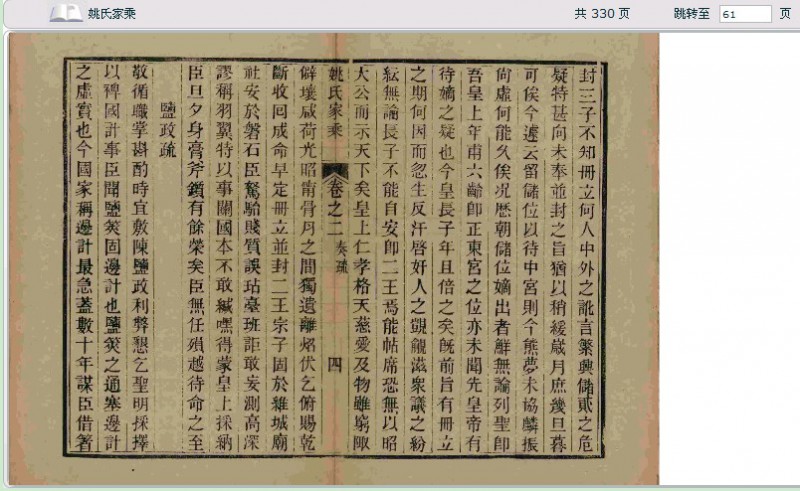 姚氏家乘
共 330 页
跳转至 61 页
封三子不知冊立何人中外之訛言繁興儲貳之危
疑特甚向未奉並封之旨猶以稍緩歲月庶幾旦暮
可俟今遽云留儲位以待中宮則今熊夢未協麟振
尙虛何能久俟况歷朝儲位嫡出者鮮無論列聖卽
吾皇上年甫六齡卽正東宮之位亦未聞先皇帝有
待嫡之疑也今皇長子年且倍之矣旣前旨有冊立
之期何因而忽生反汗啓奸人之覬覦滋衆議之紛
紜無論長子不能自安卽二王焉能帖席恐無以昭
大公而示天下矣皇上仁孝格天慈愛及物雖窮陬
姚氏家乘
卷之二
奏疏
四
僻壤咸荷光昭甯骨月之間獨遺離炤伏乞俯賜乾
斷收囘成命早定冊立並封二王宗子固於維城廟
社安於磐石臣駑駘賤質誤玷臺班詎敢妄測高深
謬稱羽翼特以事關國本不敢緘嘿得蒙皇上採納
臣旦夕身膏斧鑕有餘榮矣臣無任殞越待命之至
鹽政疏
敬循職掌斟酌時宜敷陳鹽政利弊懇乞聖明採擇
以裨國計事臣聞鹽筴固邊計也鹽筴之通塞邊計
之虛實也今國家稱邊計最急蓋數十年謀臣借箸